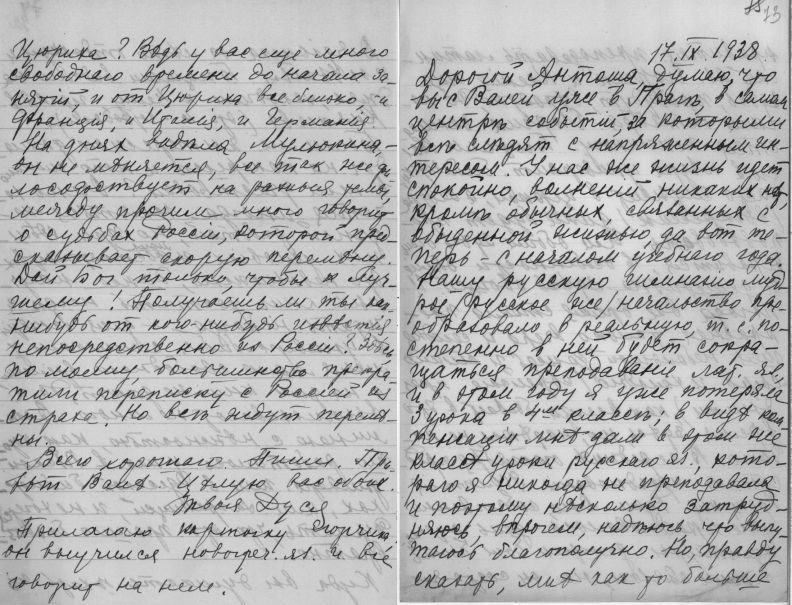 Цюриха? Вѣдь у вас еще много
свободнаго времени до начала за-
нятій, и от Цюриха все близко, и
Франція, и Италия, и Германия
На днях видѣла Мулюкина,
он не мѣняется, все так же фи-
лософствует на разныя темы,
между прочим много говорит
о судьбах Россіи, которой пред-
сказывает скорую перемѣну.
Дай Бог только, чтобы к луч-
шему! Получаешь ли ты как-
нибудь от кого-нибудь известия
непосредственно из России? Здѣсь,
по моему, большинство прекра-
тили переписку с Россией из
страха. Но всѣ ждут перемѣ-
ны.
Всего хорошаго. Пиши. При-
вѣт Валѣ Цѣлую вас обоих.
Твоя Дуся
Прилагаю карточку Егорчика,
он выучился новогреч. яз. и все
говорит на нем.
73
17.IX.1938.
Дорогой Антоша, думаю, что
вы с Валей уже в Прагѣ в самом
центрѣ событій, за которыми
всѣ слѣдят с напряженным ин-
тересом. У нас же жизнь идет
спокойно, волненій никаких нѣт,
кромѣ обычных, связанных с
обыденной жизнью, да вот те-
перь – с началом учебнаго года.
Нашу русскую гимназію муд-
рое /русское же/ начальство пре-
образовало в реальную, т. е. по-
степенно в ней будет сокра-
щаться преподаваніе лат. яз.,
и в этом году я уже потеряла
3 урока в 4ом классѣ; в видѣ ком-
пенсаціи мнѣ дали в этом же
классѣ уроки русскаго яз., кото-
раго я никогда не преподавала
и поэтому нѣсколько затруд-
няюсь, впрочем, надѣюсь что выпу-
таюсь благополучно. Но, правду
сказать, мнѣ как то больше